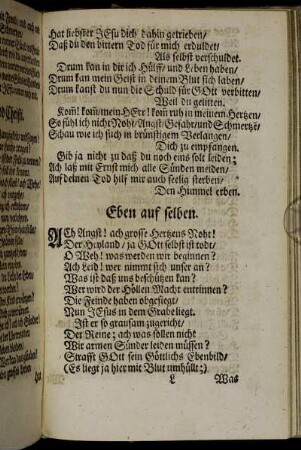 Hat liebster JEsu dich dahin getrieben/
Daß du den bittern Tod für mich erduldet/
Als selbst verschuldet.
Drum kan in dir ich Hülff/ und Leben haben/
Drum kan mein Geist in deinem Blut sich laben/
Drum kanst du nun die Schuld für GOtt verbitten/
Weil du gelitten.
Kom̃! kom̃/ mein HErr! kom̃ ruh in meinem Hertzen/
So fühl ich nicht Noht/ Angst/ Gefahr/ und Schmertzē/
Schau wie ich sich in brünstigem Verlangen/
Dich zu empfangen.
Gib ja nicht zu daß du noch eins solt leiden;
Ach laß mit Ernst mich alle Sünden meiden/
Auf deinen Tod hilf mir auch seelig sterben/
Den Himmel erben.
Eben auf selben.
ACh Angst! ach grosse Hertzens Noht!
Der Heyland/ ja GOtt selbst ist todt/
O Weh! was werden wir beginnen?
Ach Leid! wer nimmt sich unser an?
Was ist daß uns beschützen kan?
Wer wird der Höllen Macht entrinnen?
Die Feinde haben obgesiegt/
Nun JEsus in dem Grabe liegt.
Ist er so grausam zugericht/
Der Reine; ach was sollen nicht
Wir armen Sünder leiden müssen?
Strafft GOtt sein Göttlichs Ebenbild/
(Es liegt ja hier mit Blut umhüllt;)
L Was